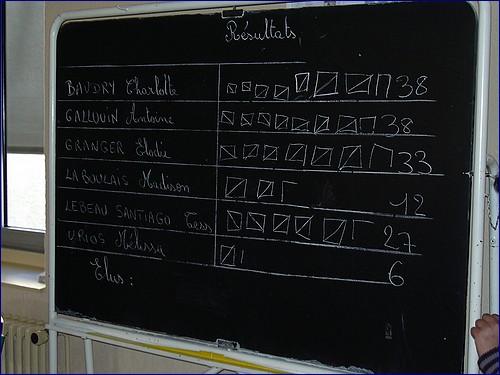 Résultats
BAUDRY Charlotte 38
GALLOUIN Antoine 38
GRANGER Elodie 33
LABOULAIS Madison 12
LEBEAU SANTIAGO Tess 27
URIOS Mélissa 6
Elus :